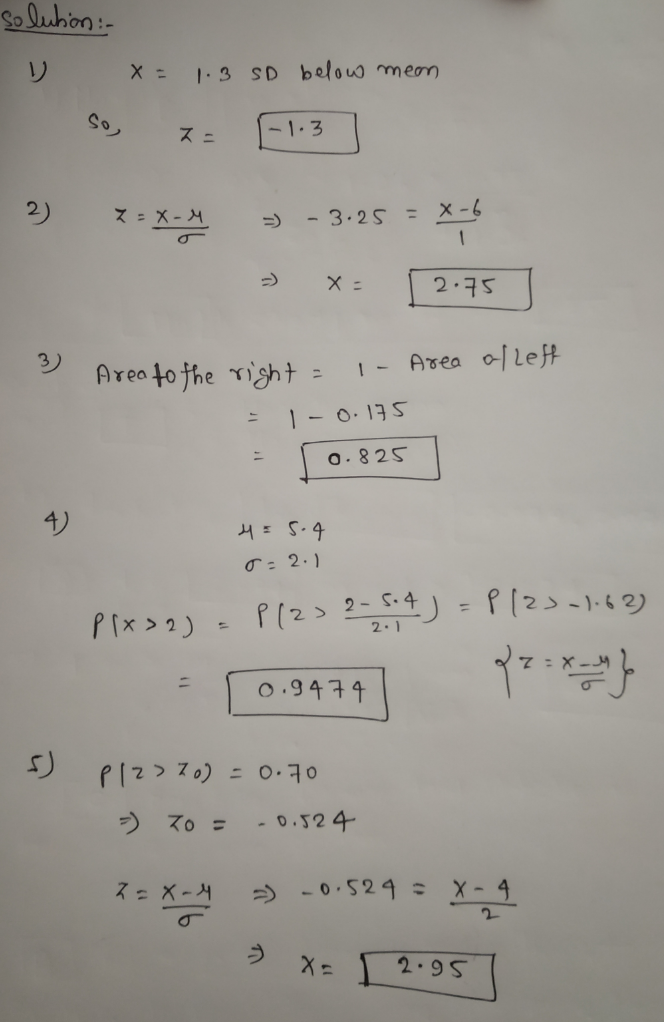 Solution:-
1) X = 1.3 SD below mean
So, Z = -1.3
2) Z = X-μ/σ ⇒ -3.25 = X-6/1
⇒ X = 2.75
3) Area to the right = 1 - Area of Left
= 1 - 0.175
= 0.825
4) μ = 5.4
σ = 2.1
P(X > 2) = P(Z > 2-5.4/2.1) = P(Z > -1.62)
= 0.9474 {Z = X-μ/σ}
5) P(Z > Z0) = 0.70
⇒ Z0 = -0.524
Z = X-μ/σ ⇒ -0.524 = X-4/2
⇒ X = 2.95